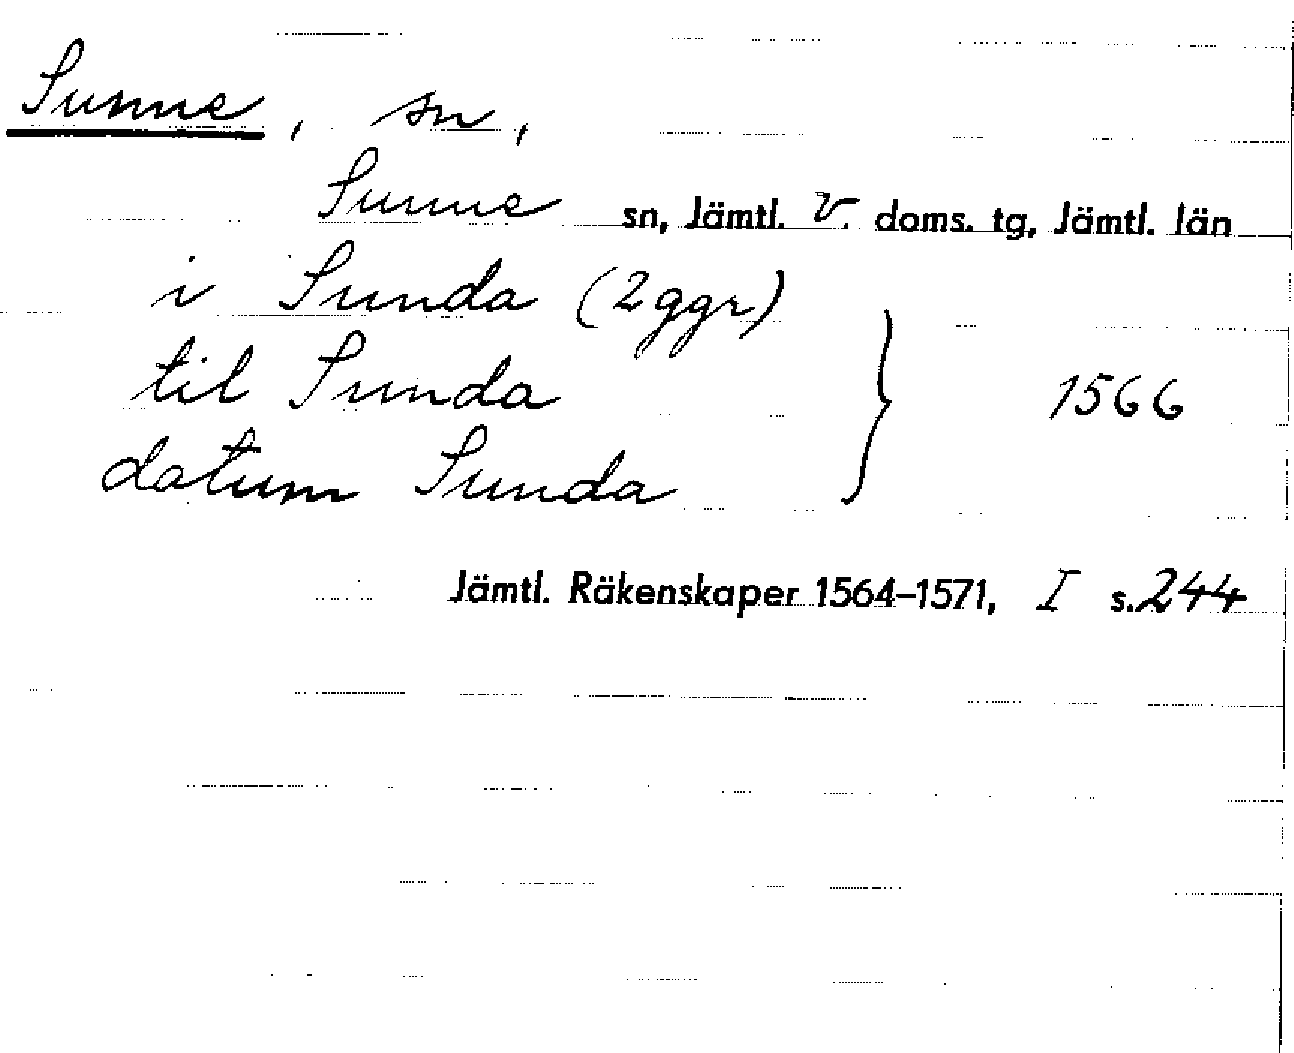 Sunne, sn,
Sunne sn, Jämtl. v. doms. tg, Jämtl. län
i Sunda (2 ggr)
til Sunda } 1566
datum Sunda
Jämtl. Räkenskaper 1564–1571, I s. 244